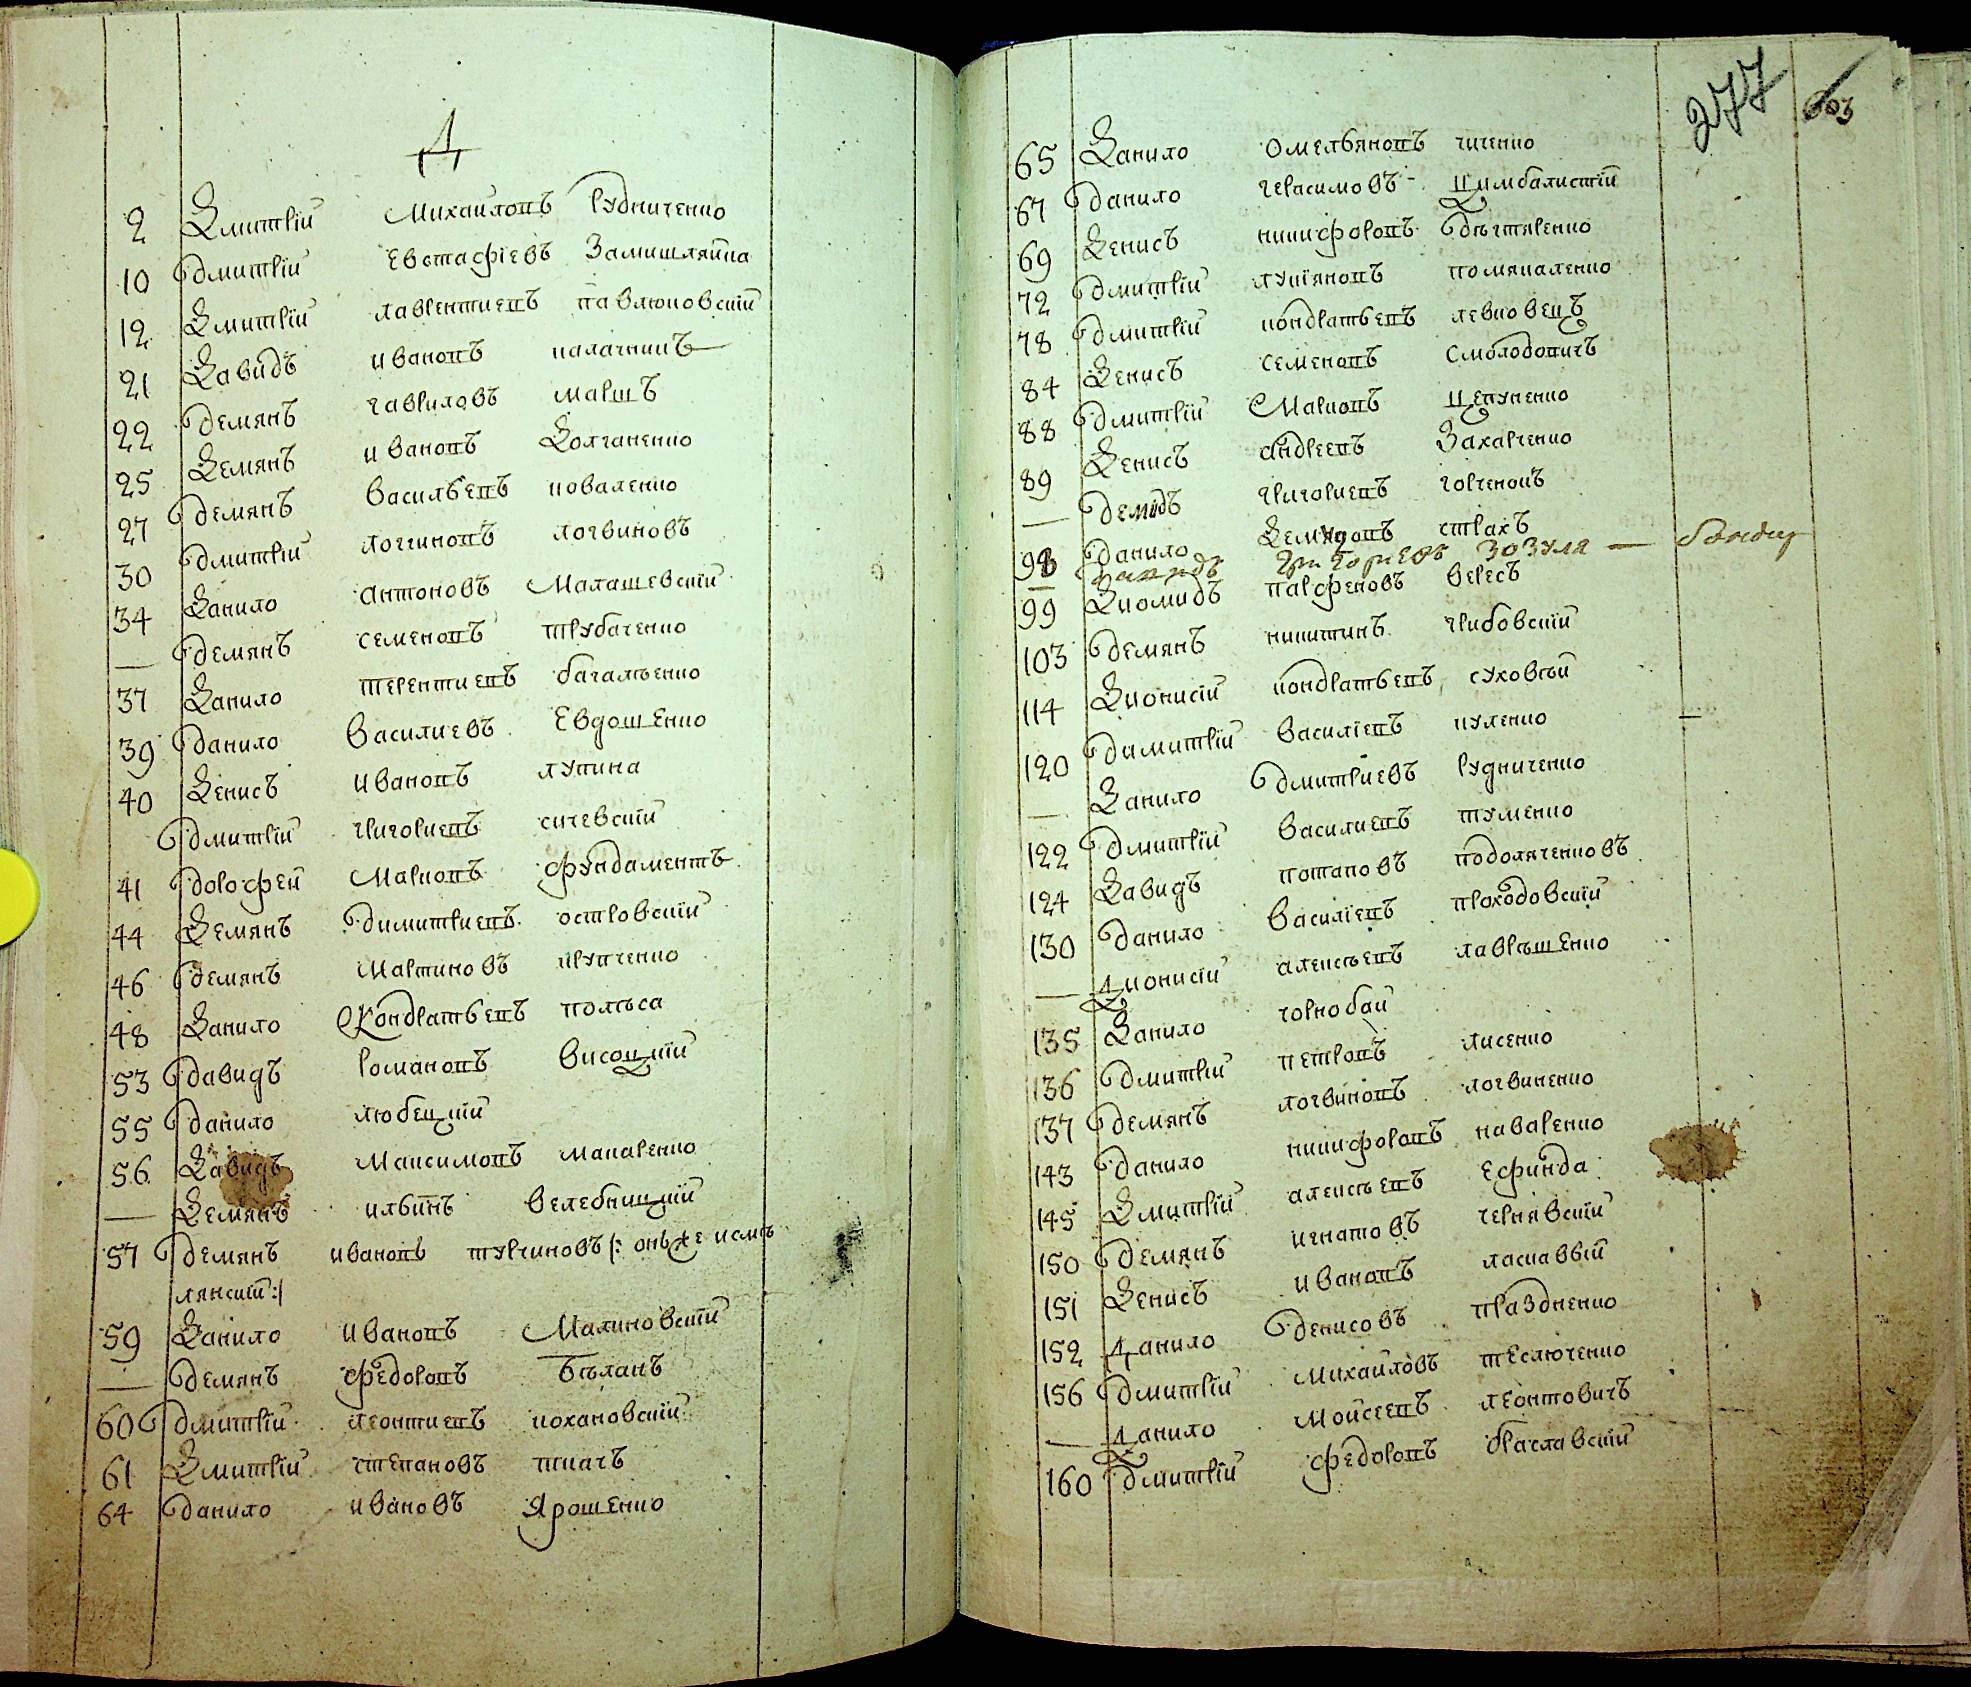 Д
2 Дмитрій Михайловъ Рудниченко
10 Дмитрій Евстафіевъ Замишляйка
12 Дмитрій Лаврентиевъ Павлюковскій
21 Давидъ Ивановъ Калачникъ
22 Демянъ Гавриловъ Маршъ
25 Демянъ Ивановъ Долганенко
27 Демянъ Васильевъ Коваленко
30 Дмитрій Логгиновъ Логвиновъ
34 Данило Антоновъ Малашевскій
— Демянъ Семеновъ Трубаченко
37 Данило Терентиевъ
39 Данило Василиевъ Евдошенко
40 Денисъ Ивановъ Лупина
Дмитрій Григориевъ Сичевскій
41 Дорофей Марковъ Фундаментъ
44 Демянъ Димитриевъ Островскій
46 Демянъ Мартиновъ Крупченко
48 Данило Кондратьевъ Полѣса
53 Давидъ Романовъ Висоцкій
55 Данило Любецкій
56 Давидъ Максимовъ Макаренко
— Демянъ Ильинъ Велебницкій
57 Демянъ Ивановъ Турчиновъ /: онъ же Исмаъ
лянскій :/
59 Данило Ивановъ Малиновскій
— Демянъ Федоровъ Бѣланъ
60 Дмитрій Леонтиевъ Кохановскій
61 Дмитрій Степановъ Ткачъ
64 Данило Ивановъ Ярошенко
277 603
65 Данило Омельяновъ Чиченко
67 Данило Герасимовъ Цимбалистій
69 Денисъ Никифоровъ Дѣгтяренко
72 Дмитрій Лукіяновъ Помякаленко
78 Дмитрій Кондратьевъ Левковецъ
84 Денисъ Семеновъ Смолодовичъ
88 Дмитрій Марковъ Цепуненко
89 Денисъ Андреевъ Захарченко
— Демидъ Григориевъ Горченокъ
98 Данило Демидовъ Страхъ
Григориевъ Зозуля —
99 Диомидъ Парфеновъ Велесъ
103 Демянъ Никитинъ Грибовскій
114 Дионисій Кондратьевъ Суховѣй
120 Димитрій Василіевъ Куленко
— Данило Дмитриевъ Рудниченко
122 Дмитрій Василиевъ Туменко
124 Давидъ Потаповъ Подоляченковъ
130 Данило Василіевъ Проходовскій
— Дионисій Алексѣевъ Лаврѣшенко
135 Данило Чорнобай
136 Дмитрій Петровъ Лисенко
137 Демянъ Логвиновъ Логвиненко
143 Данило Никифоровъ Наваренко
145 Дмитрій Алексѣевъ Ефинда
150 Демянъ Игнатовъ Чернявскій
151 Денисъ Ивановъ Ласкаввій
152 Данило Денисовъ Праздненко
156 Дмитрій Михайловъ Теслюченко
— Данило Мойсеевъ Леонтовичъ
160 Дмитрій Федоровъ Браславскій